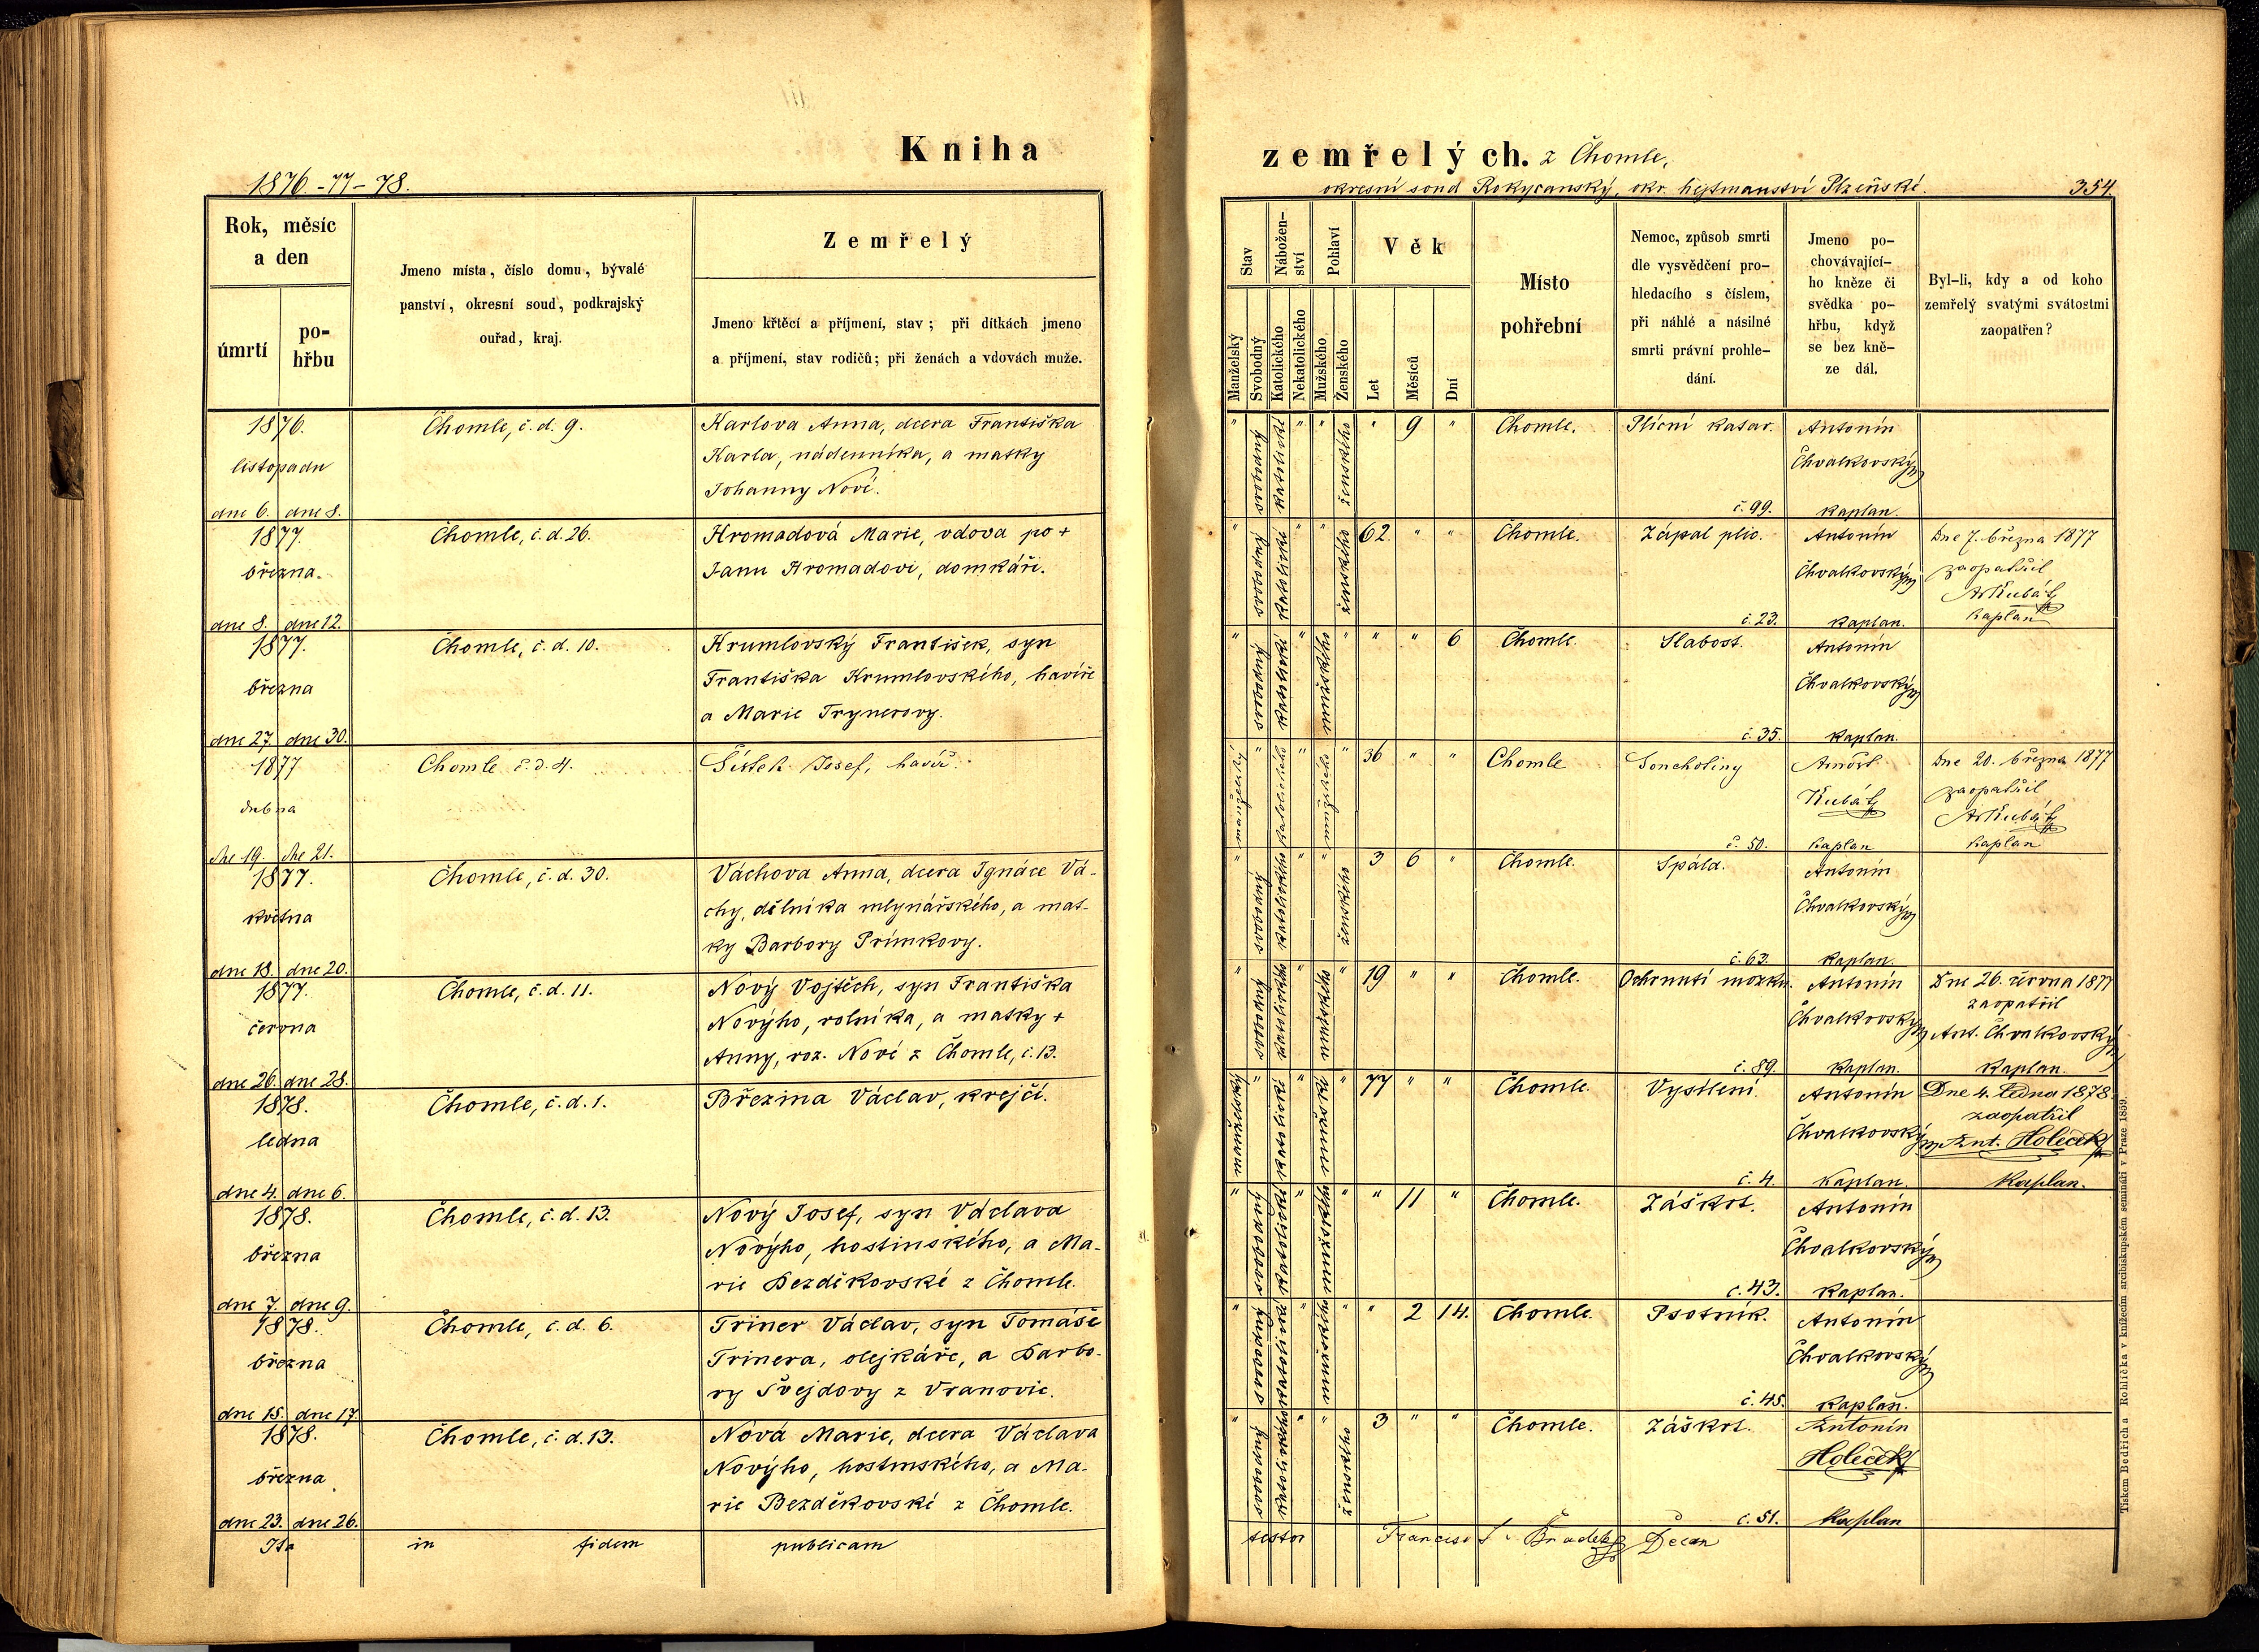 Kniha
zemřelých. z Chomle,
1876.-77-78.
okresní soud Rokycanský, okr. hejtmanství Plzeňské.
354.
Rok, měsíc
a den
úmrtí
po-
hřbu
Jmeno místa, číslo domu, bývalé
panství, okresní soud, podkrajský
ouřad, kraj.
Zemřelý
Jmeno křtěcí a příjmení, stav; při dítkách jmeno
a příjmení, stav rodičů; při ženách a vdovách muže.
Stav
Manželský
Svobodný
Nábožen-
ství
Katolického
Nekatolického
Pohlaví
Mužského
Ženského
Věk
Let
Měsíců
Dní
Místo
pohřební
Nemoc, způsob smrti
dle vysvědčení pro-
hledacího s číslem,
při náhlé a násilné
smrti právní prohle-
dání.
Jmeno po-
chovávající-
ho kněze či
svědka po-
hřbu, když
se bez kně-
ze dál.
Byl-li, kdy a od koho
zemřelý svatými svátostmi
zaopatřen?
1876.
listopadu
dne 6. dne 8.
Chomle, č. d. 9.
Karlova Anna, dcera Františka
Karla, nádenníka, a matky
Johanny Nové.
" svobodný katolické " " ženského " 9 "
Chomle.
Plícní katar.
č. 99.
Antonín
Chvalkovský
kaplan.
1877.
března.
dne 8. dne 12.
Chomle, č. d. 26.
Hromadová Marie, vdova po +
Janu Hromadovi, domkáři.
" svobodný katolické " " ženského 62. " "
Chomle.
Zápal plic.
č. 23.
Antonín
Chvalkovský
kaplan.
Dne 7. března 1877
zaopatřil
A. Kubát
kaplan
1877.
března
dne 27. dne 30.
Chomle, č. d. 10.
Krumlovský František, syn
Františka Krumlovského, havíře
a Marie Trynerovy.
" svobodný katolické " mužského " " " 6
Chomle.
Slabost.
č. 35.
Antonín
Chvalkovský
kaplan.
1877
dubna
dne 19. dne 21.
Chomle č. d. 4.
Šístek Josef, havíř.
manželský " katolického " mužského " 36 " "
Chomle
Souchotiny
č. 50.
Arnošt
Kubát
kaplan
Dne 20. března 1877
zaopatřil
A. Kubát
kaplan
1877.
května
dne 18. dne 20.
Chomle, č. d. 30.
Váchova Anna, dcera Ignáce Vá-
chy, dělníka mlynářského, a mat-
ky Barbory Prímkovy.
" svobodný katolického " " ženského 3 6 "
Chomle.
Spála.
č. 63.
Antonín
Chvalkovský
kaplan.
1877.
června
dne 26. dne 28.
Chomle, č. d. 11.
Nový Vojtěch, syn Františka
Novýho, rolníka, a matky +
Anny, roz. Nové z Chomle, č. 13.
" svobodný katolického " mužského " 19 " "
Chomle.
Ochrnutí mozku.
č. 89.
Antonín
Chvalkovský
kaplan.
Dne 26. června 1877
zaopatřil
Ant. Chvalkovský
kaplan.
1878.
ledna
dne 4. dne 6.
Chomle, č. d. 1.
Březina Václav, krejčí.
manželský " katolické " mužské " 77 " "
Chomle.
Vysílení.
č. 4.
Antonín
Chvalkovský
kaplan.
Dne 4. ledna 1878.
zaopatřil
Ant. Holeček
kaplan.
1878.
března
dne 7. dne 9.
Chomle, č. d. 13.
Nový Josef, syn Václava
Novýho, hostinského, a Ma-
rie Bezděkovské z Chomle.
" svobodný katolické " mužského " " 11 "
Chomle.
Záškrt.
č. 43.
Antonín
Chvalkovský
kaplan.
1878.
března
dne 15. dne 17.
Chomle, č. d. 6.
Triner Václav, syn Tomáše
Trinera, olejkáře, a Barbo-
ry Švejdovy z Vranovic.
" svobodný katolické " mužského " " 2 14.
Chomle.
Psotník.
č. 45.
Antonín
Chvalkovský
kaplan.
1878.
března
dne 23. dne 26.
Chomle, č. d. 13.
Nová Marie, dcera Václava
Novýho, hostinského, a Ma-
rie Bezděkovské z Chomle.
" svobodný katolického " " ženského 3 " "
Chomle.
Záškrt.
č. 51.
Antonín
Holeček
kaplan
Ita in fidem publicam
testor Francisc Bradeh Decan
Tiskem Bedřicha Rohlíčka v knížecím arcibiskupském semináři v Praze 1859.